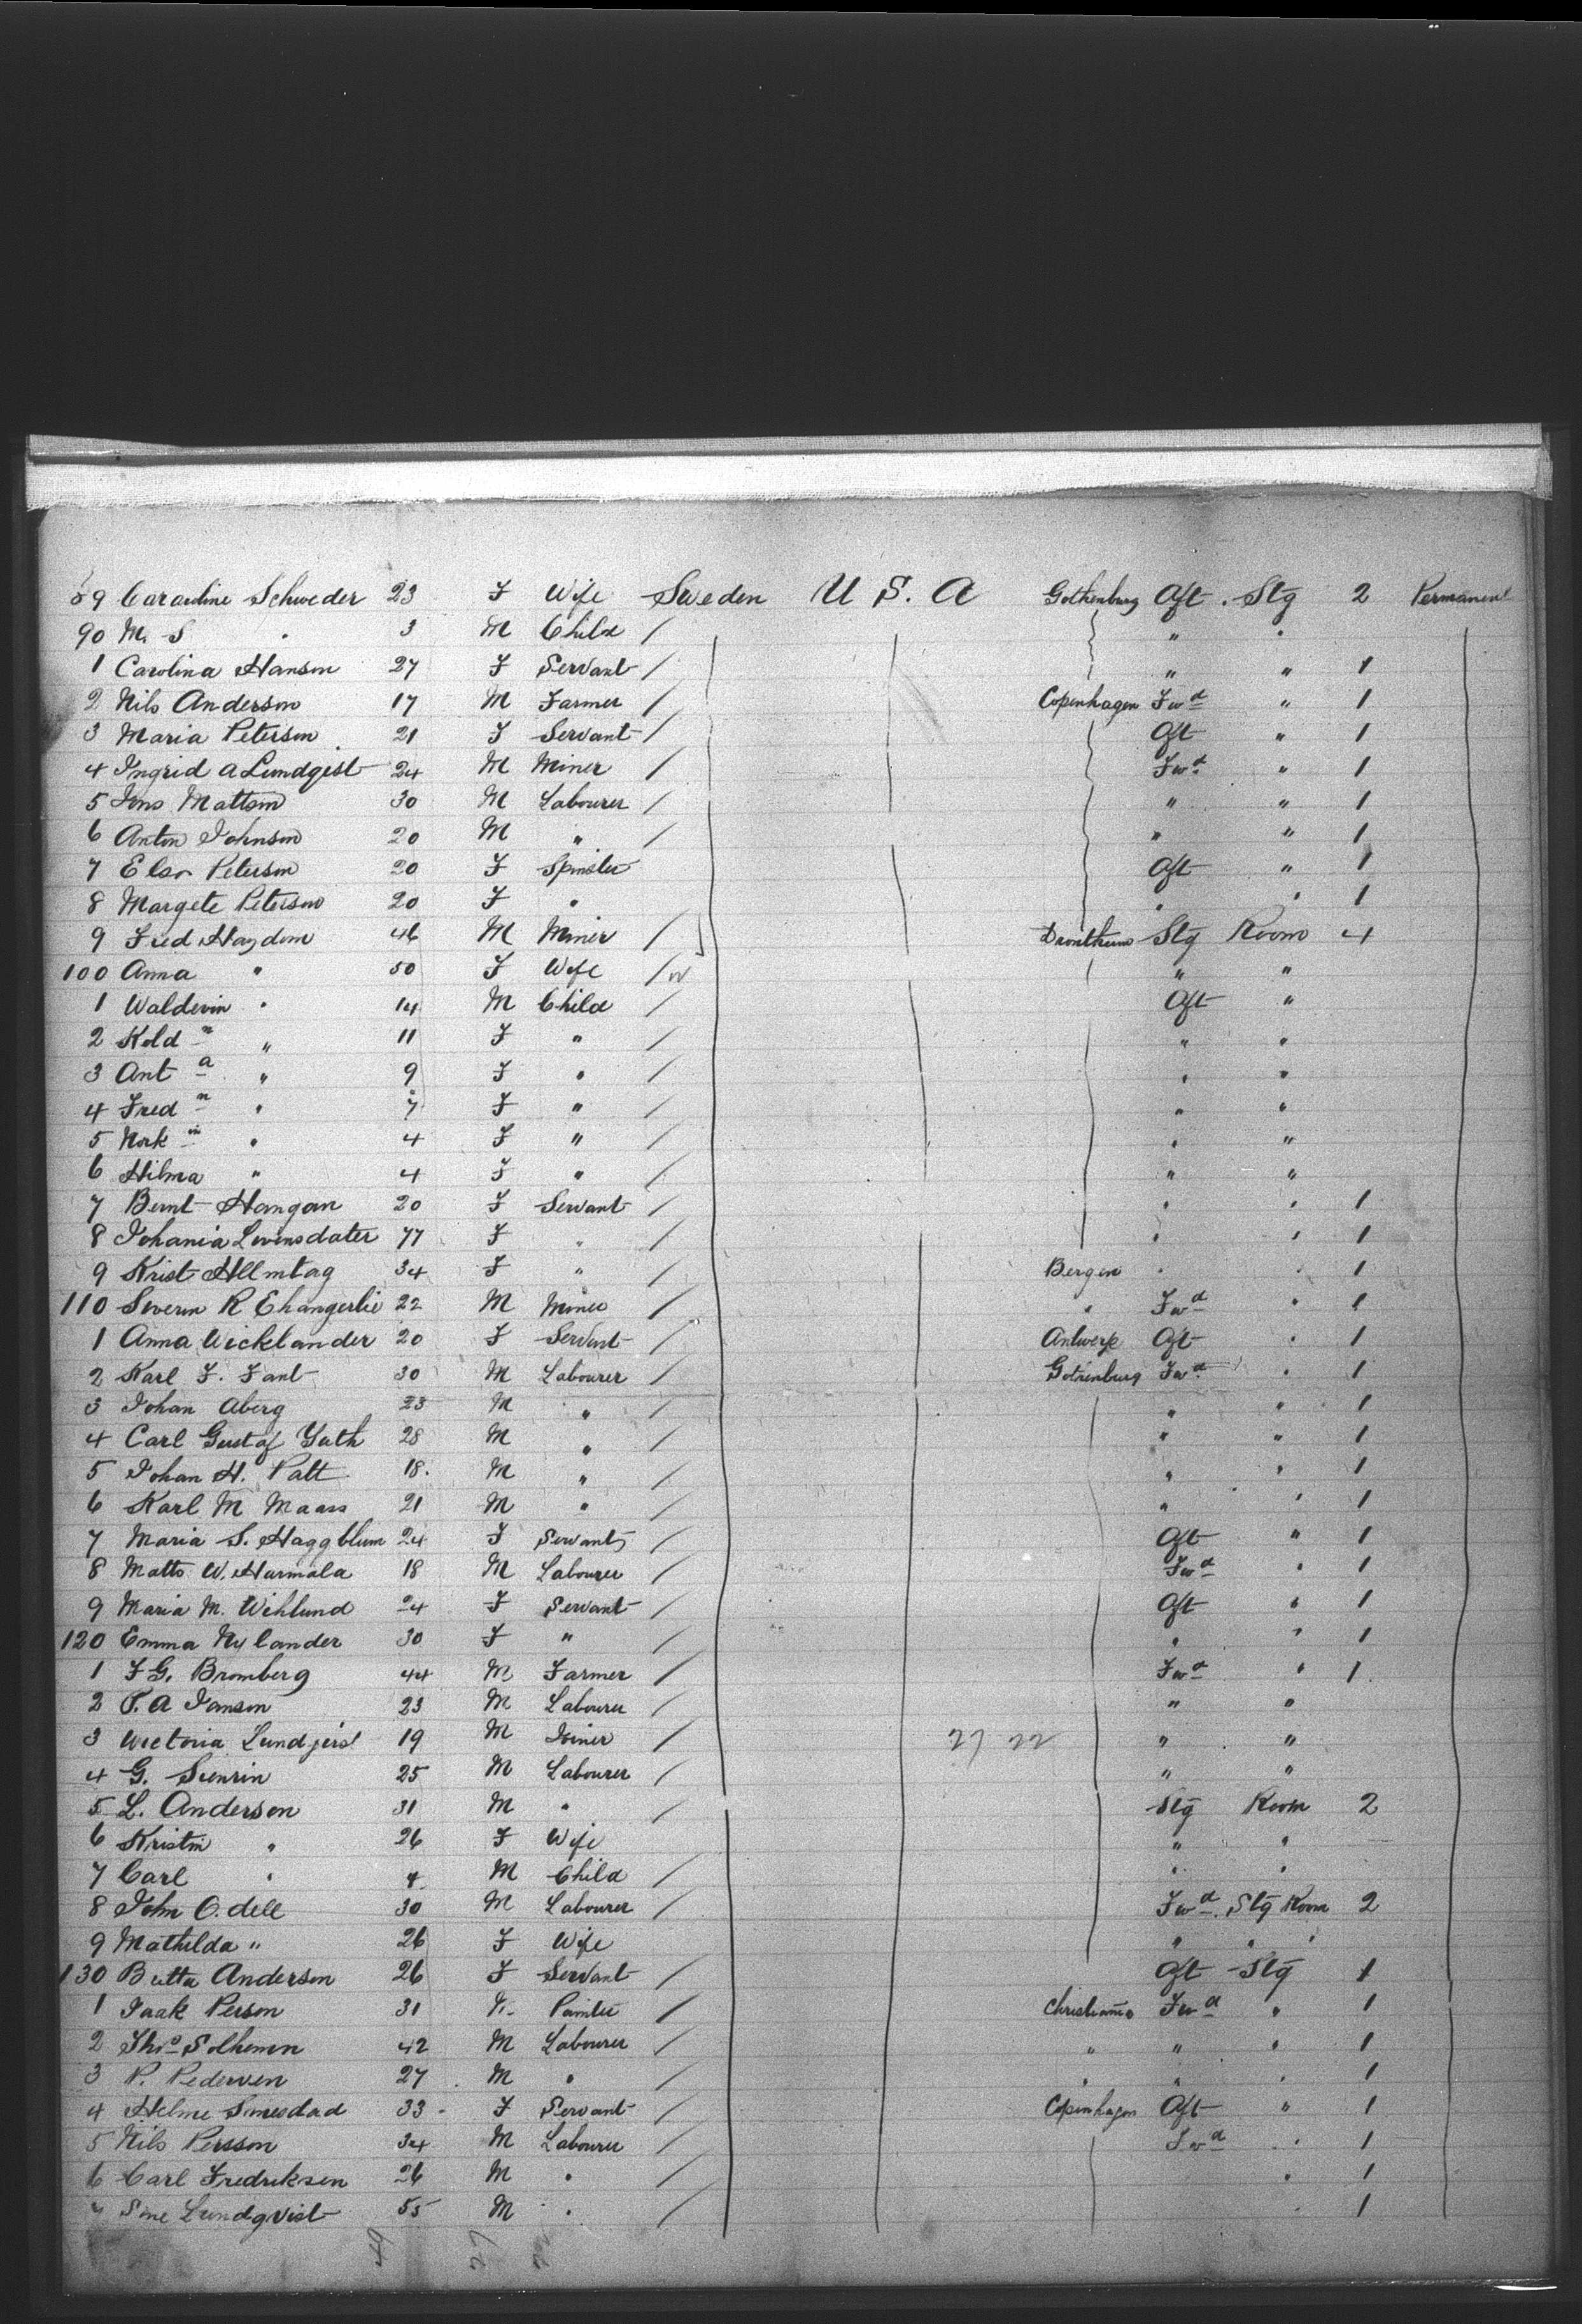 89 Carauline Schweder 23 F Wife Sweden U S. A Gothenburg Aft. Stg 2 Permanent
90 M. S " 3 M Child / " "
1 Carolina Hanson 27 F Servant / " " 1
2 Nils Anderson 17 M Farmer / Copenhagen Fwd " 1
3 Maria Peterson 21 F Servant / Aft " 1
4 Ingrid A Lundqist 24 M Miner / Fwd " 1
5 Jons Mattson 30 M Labourer / " " 1
6 Anton Johnson 20 M " / " " 1
7 Elsa Peterson 20 F Spinster Aft " 1
8 Margete Peterson 20 F " " " 1
9 Fred Haydom 46 M Miner / Drontheim Stg Room 4
100 Anna " 50 F Wife / " "
1 Waldevin " 14 M Child / Aft "
2 Kold n " 11 F " / " "
3 Ant a " 9 F " / " "
4 Fred n " 7 F " / " "
5 Nork n " 4 F " / " "
6 Hilma " 4 F " / " "
7 Bernt Hangan 20 F Servant / " " 1
8 Johania Levensdater 77 F " / " " 1
9 Krist Hllmtag 34 F " / Bergen " " 1
110 Severin R Ehangerlie 22 M Miner / " Fwd " 1
1 Anna Wicklander 20 F Servant / Antwerp Aft " 1
2 Karl F. Fant 30 M Labourer / Gotenburg Fwd " 1
3 Johan Aberg 23 M " / " " 1
4 Carl Gustaf Guth 28 M " / " " 1
5 Johan H. Palt 18. M " / " " 1
6 Karl M Maass 21 M " / " " 1
7 Maria S. Haggblum 24 F Servant / Aft " 1
8 Matts W. Harmala 18 M Labourer / Fwd " 1
9 Maria M. Wihlund 24 F Servant / Aft " 1
120 Emma Nylander 30 F " / " " 1
1 F G. Bromberg 44 M Farmer / Fwd " 1
2 T. A Janson 23 M Labourer " "
3 Wictoria 19 M Joiner / 27 22 " "
4 G. 25 M Labourer / " "
5 L. Anderson 31 M " / Stg Room 2
6 Kristin " 26 F Wife " "
7 Carl " 4 M Child / " "
8 John O. dell 30 M Labourer / Fwd. Stg Room 2
9 Mathilda " 26 F Wife " " "
130 Butta Anderson 26 F Servant / Aft Stg 1
1 Isaak Person 31 M Painter / Christiania Fwd " 1
2 Thos Solhemen 42 M Labourer / " " " 1
3 P. Pedersen 27 M " / " " " 1
4 Helme 33 F Servant / Copenhagen Aft " 1
5 Nils Persson 34 M Labourer / Fwd " 1
6 Carl Fredriksen 26 M " / " 1
7 Sine Lundqvist 55 M " / " 1